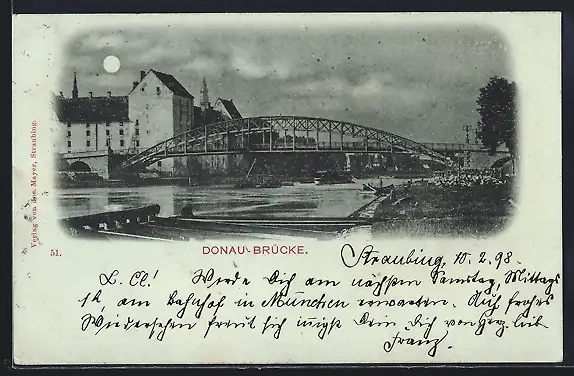 Verlag von Jos. Mayer, Straubing.
51.
DONAU-BRÜCKE.
Straubing, 10.2.98.
L. Cl! Werde Dich am nächsten Samstag, Mittags
12, am Bahnhof in München erwarten. Auf frohes
Wiedersehen freut sich innigst Dein Dich von Herz. lieb.
Franz.